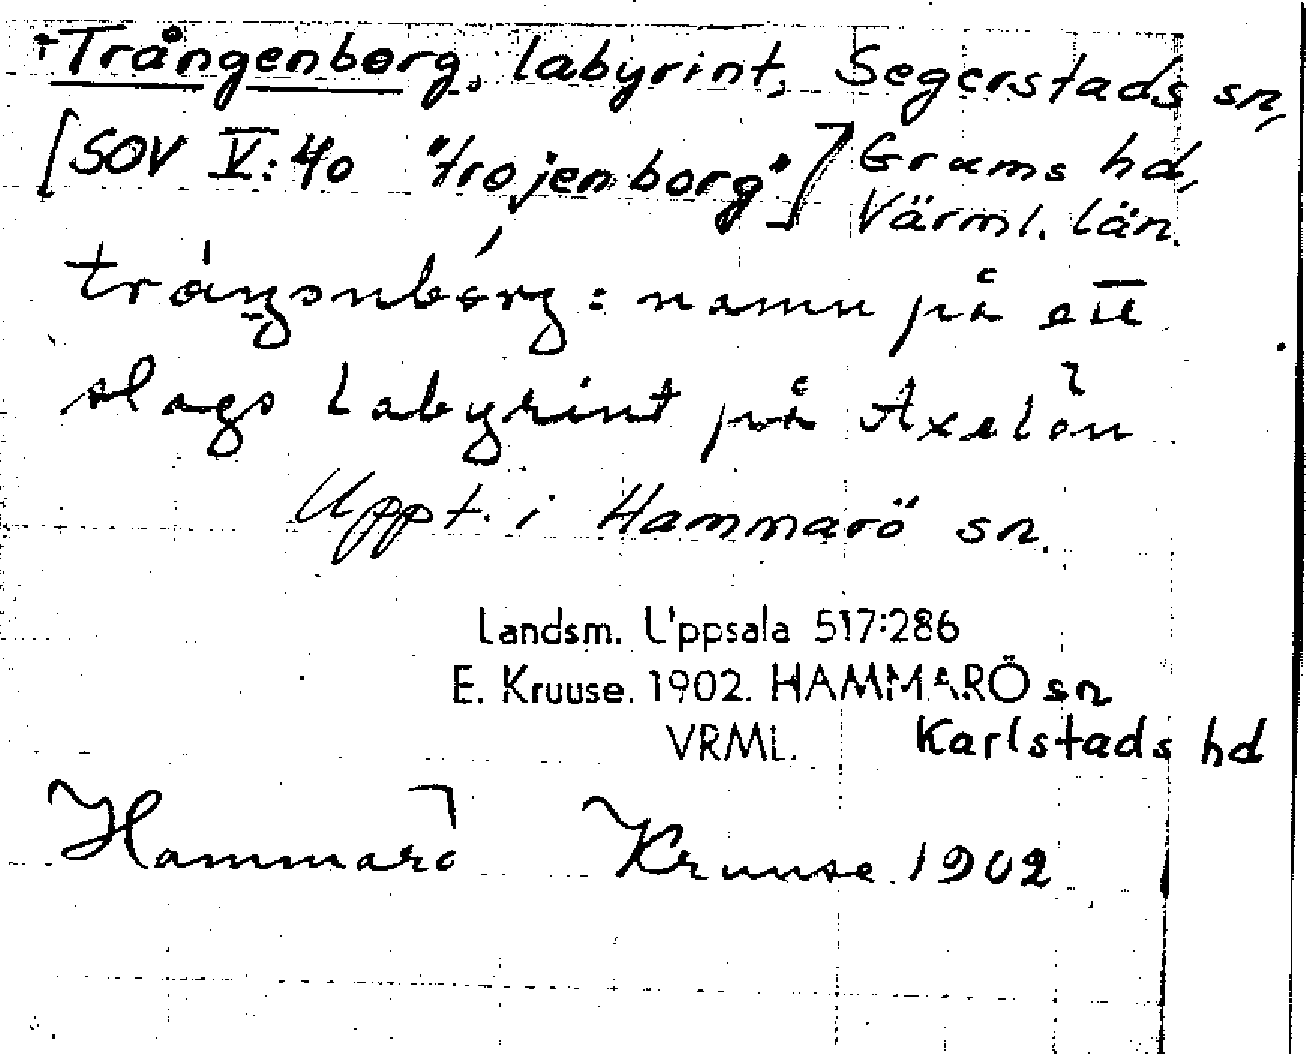 +Trångenborg, labyrint, Segerstads sn,
[SOV V:40 "trojenborg"] Grums hd,
Värml. län.
trångenborg: namn på ett
slags labyrint på Axelön
Uppt. i Hammarö sn.
Landsm. Uppsala 517:286
E. Kruuse. 1902. HAMMARÖ sn
VRML. Karlstads hd
Hammarö Kruuse 1902